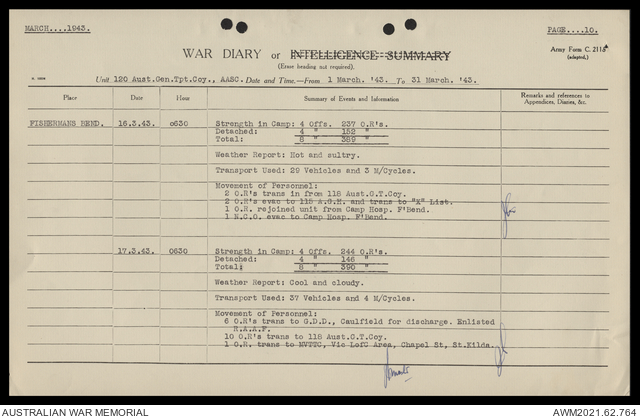 MARCH....1943.
PAGE....10.
WAR DIARY or INTELLIGENCE SUMMARY
Army Form C. 2118
(adapted.)
(Erase heading not required).
Unit 120 Aust.Gen.Tpt.Coy., AASC. Date and Time.—From 1 March. '43. To 31 March. '43.
Place Date Hour Summary of Events and Information Remarks and references to Appendices, Diaries, &c.
FISHERMANS BEND. 16.3.43. 0630 Strength in Camp: 4 Offs. 237 O.R's.
Detached: 4 " 152 "
Total: 8 " 389 "
Weather Report: Hot and sultry.
Transport Used: 29 Vehicles and 3 M/Cycles.
Movement of Personnel:
2 O.R's trans in from 118 Aust.G.T.Coy.
2 O.R's evac to 115 A.G.H. and trans to "X" List.
1 O.R. rejoined unit from Camp Hosp. F'Bend.
1 N.C.O. evac to Camp Hosp. F'Bend.
17.3.43. 0630 Strength in Camp: 4 Offs. 244 O.R's.
Detached: 4 " 146 "
Total: 8 " 390 "
Weather Report: Cool and cloudy.
Transport Used: 37 Vehicles and 4 M/Cycles.
Movement of Personnel:
6 O.R's trans to G.D.D., Caulfield for discharge. Enlisted
R.A.A.F.
10 O.R's trans to 118 Aust.G.T.Coy.
1 O.R. trans to MVTTC, Vic LofC Area, Chapel St, St.Kilda.
AUSTRALIAN WAR MEMORIAL
AWM2021.62.764